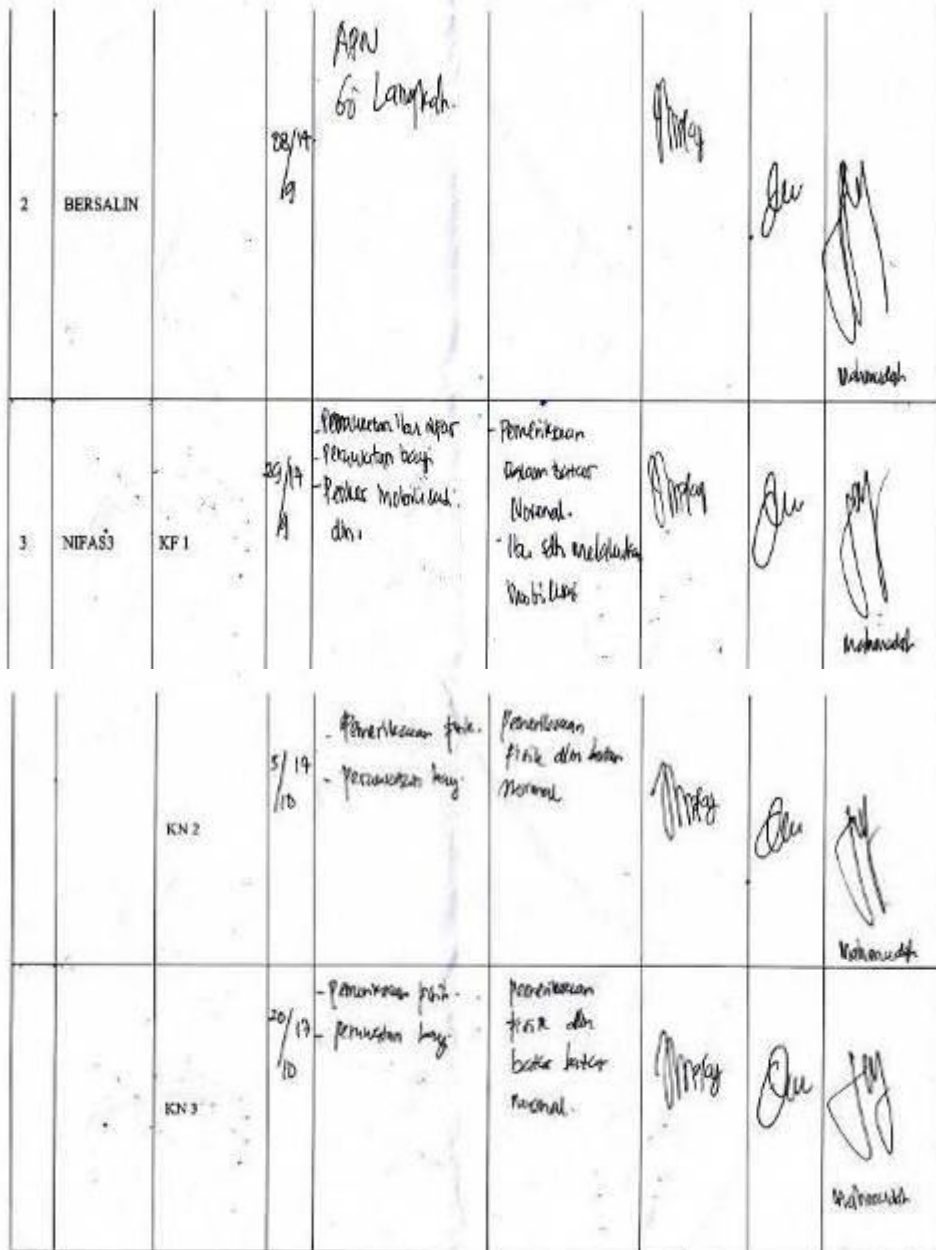 2 BERSALIN
28/17
9
APN
60 Langkah.
Mahmudah
3 NIFAS3 KF 1
29/17
9
- Perawatan ibu
- Perawatan bayi
mobilisasi
dini
- Pemeriksaan
Dalam batas
Normal.
- Ibu sdh melakukan
Mobilisasi
Mahmudah
KN 2
5/17
10
- Pemeriksaan fisik.
- perawatan bayi
Pemeriksaan
fisik dlm batas
Normal
Mahmudah
KN 3
20/17
10
- pemeriksaan fisik.
- perawatan bayi
pemeriksaan
fisik dlm
batas batas
normal.
Mahmudah